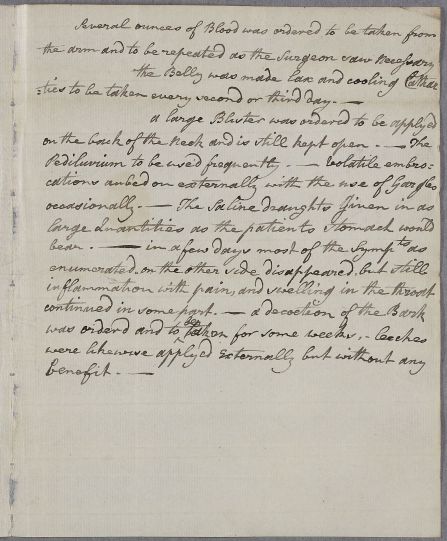 Several ounces of Blood was ordered to be taken from
the arm and to be repeated as the Surgeon saw Necessary
the Belly was made lax and cooling Cathar
=tics to be taken every second or third Day. —
a large Blister was ordered to be applyed
on the back of the Neck and is still kept open. — The
Pediluvium to be used frequently — Volatile embro=
cations rubed on externally with the use of Gargles
occasionally. — The Saline draughts Given in as
large Quantities as the patients Stomach would
bear. — in a few days most of the Sympts as
enumerated on the other side disappeared, but still
inflammation with pain, and swelling in the throat
continued in some part. — a decoction of the Bark
was orderd and to be taken for some weeks, - leeches
were likewise applyed Externally but without any
benefit. —